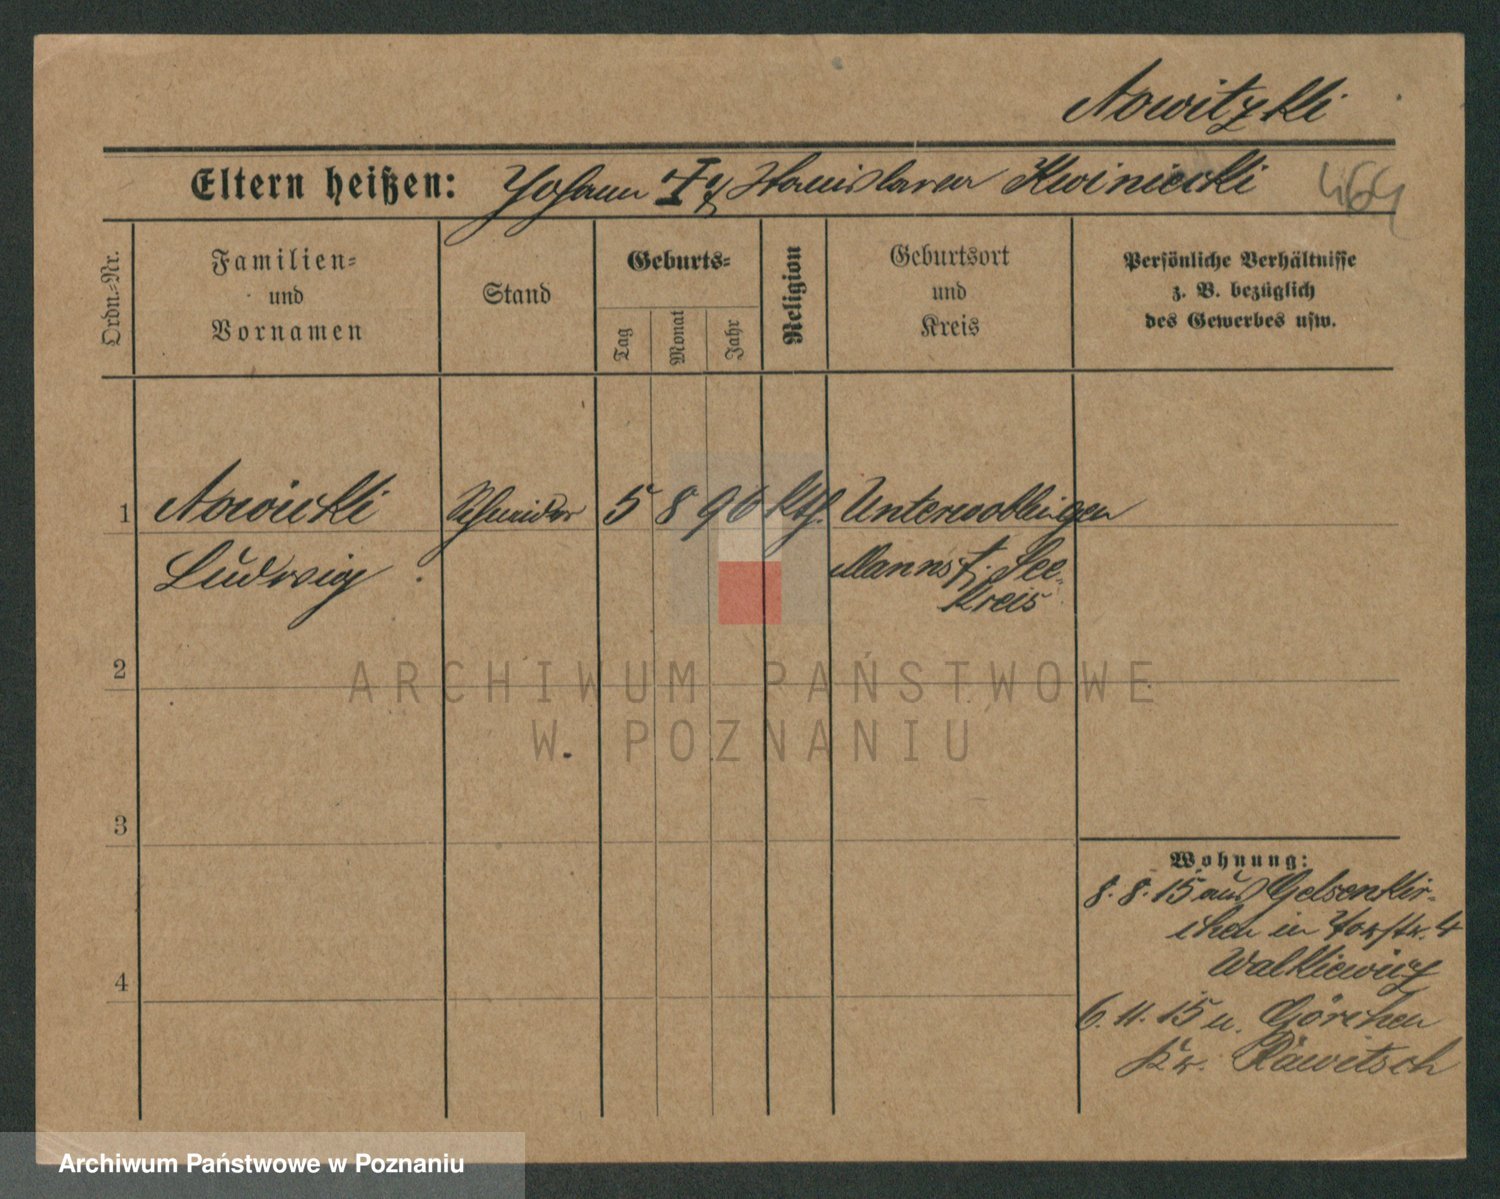 Nowitzki
Eltern heißen: Johann † u. Stanislawa Kwiniecki 464
Ordn.=Nr.
Familien=
und
Vornamen
Stand
Geburts=
Tag
Monat
Jahr
Religion
Geburtsort
und
Kreis
Persönliche Verhältnisse
z. B. bezüglich
des Gewerbes usw.
1 Nowicki Schneider 5 8 96 kth. Unterwoblingen
Ludwig Mannsf. See-
kreis
2
ARCHIWUM PAŃSTWOWE
W POZNANIU
3
Wohnung:
8. 8. 15 aus Gelsenkir-
chen in 4
Walkiewicz
4
6. 11. 15 n. Görchen
Kr. Rawitsch
Archiwum Państwowe w Poznaniu